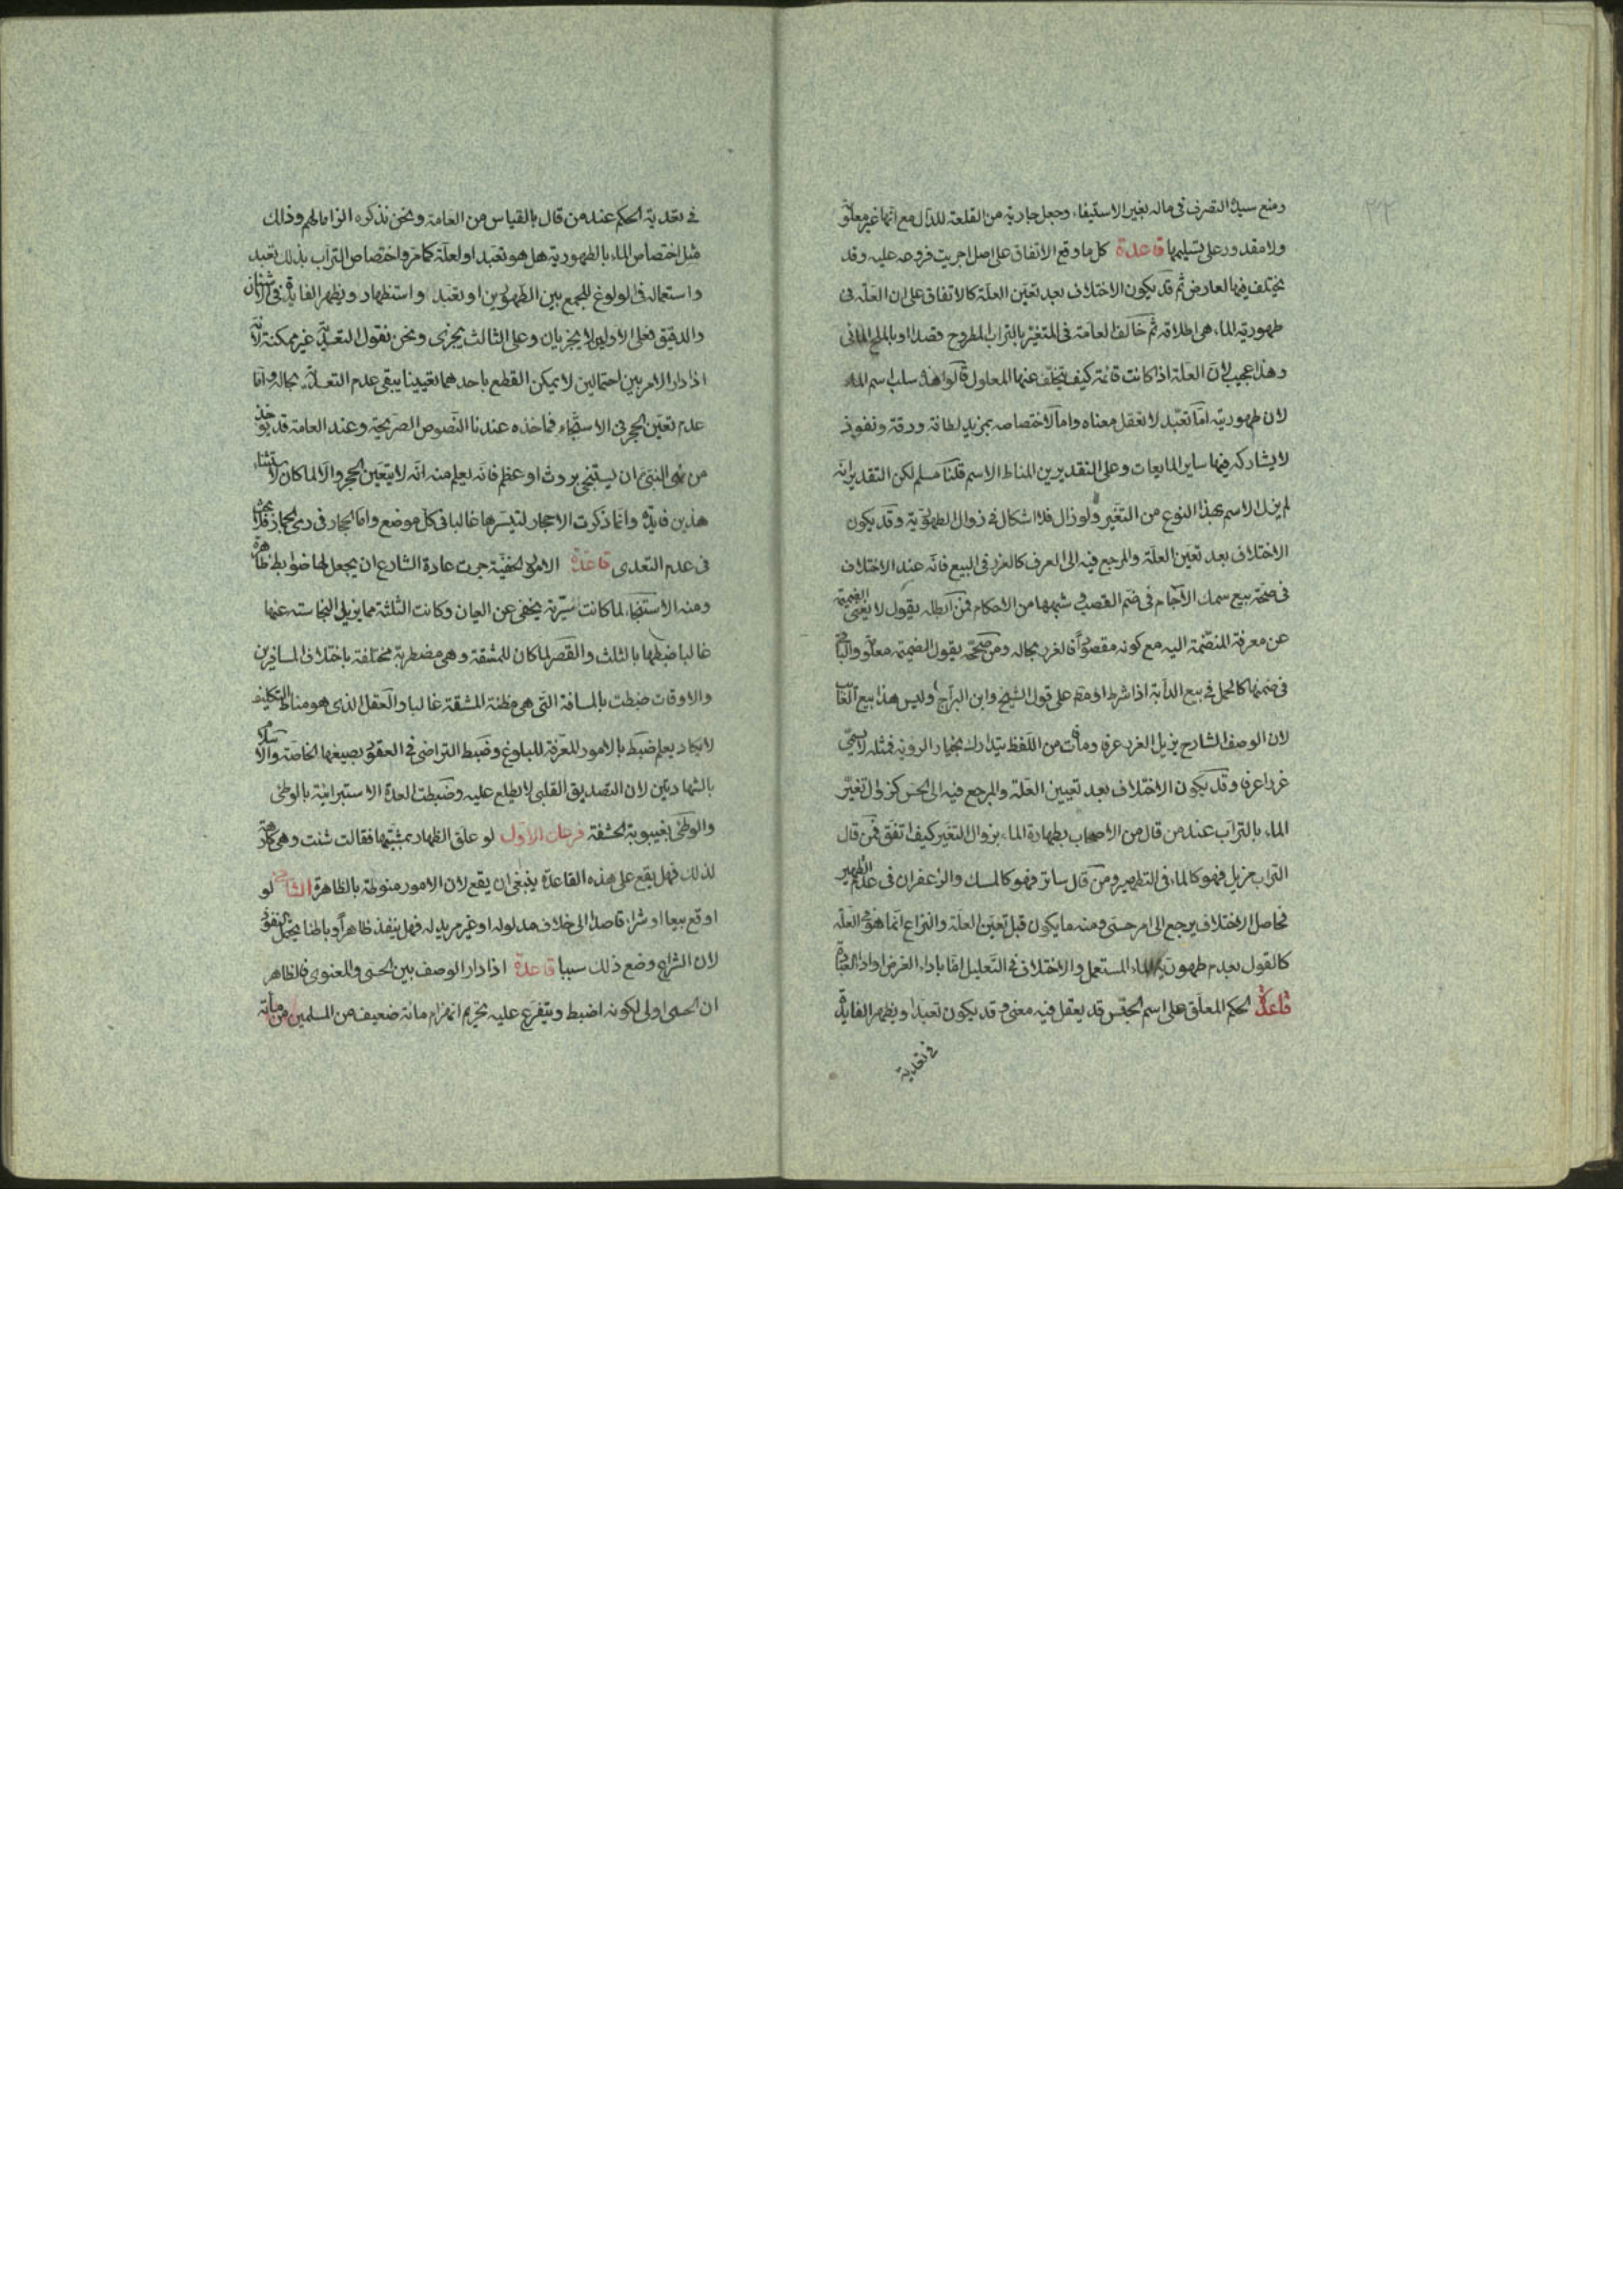 ومنع سيد التصرف فى ماله بغير الاستيفاء وجعل جارية من القلعة للدال مع انها غير معلو
ولا مقدور على تسليمها قاعدة كل ما وقع الاتفاق على اصل اجريت فروعه عليه وقد
يختلف فيها لعارض ثم قد يكون الاختلاف بعد تعين العلة كالاتفاق على ان العلة فى
طهورية الماء هى اطلاقه ثم خالف العامة فى المتغير بالتراب المطروح قصدا او بالملح المائى
وهذا عجيب لان العلة اذا كانت قائمة كيف يتخلف عنها المعلول قالوا هذا سلب اسم الماء
لان طهوريته اما تعبد لا نعقل معناه واما لاختصاصه بمزيد لطافة ورقة ونفوذ
لا يشاركه فيها ساير المايعات وعلى التقديرين المناط الاسم قلنا مسلم لكن التقدير انه
لم يزل الاسم بهذا النوع من التغير ولو زال فلا اشكال فى زوال الطهورية وقد يكون
الاختلاف بعد تعين العلة والمرجع فيه الى العرف كالغرر فى البيع فانه عند الاختلاف
فى صحة بيع سمك الآجام فى ضم القصب و شبهها من الاحكام فمن ابطله يقول لا يغنى الضميمة
عن معرفة المنضمة اليه مع كونه مقصودا فالغرر بحاله ومن صححه يقول الضميمة معلو والباقى
فى ضمنها كالحمل فى بيع الدابة اذا شرط او مطـ على قول الشيخ وابن البراج وليس هذا بيع الغايب
لان الوصف الشارح يزيل الغرر عرفا وما فات من اللفظ يتدارك بخيار الروية فمثله لا يسمى
غررا عرفا وقد يكون الاختلاف بعد تعيين العلة والمرجع فيه الى الحس كزوال تغير
الماء بالتراب عند من قال من الاصحاب بطهارة الماء بزوال التغير كيف اتفق فمن قال
التراب مزيل فهو كالماء فى التطهير ومن قال ساتر فهو كالمسك والزعفران فى عدم التطهير
فحاصل الاختلاف يرجع الى امر حسى ومنه ما يكون قبل تعين العلة والنزاع انما هو فى العلة
كالقول بعدم طهورية الماء المستعمل والاختلاف فى التعليل اما باداء الفرض او اداء العبادة
قاعدة الحكم المعلق على اسم الجنس قد يعقل فيه معنى وقد يكون تعبدا ويظهر الفايدة
فى تعدية
فى تعدية الحكم عند من قال بالقياس من العامة ونحن نذكره الزاما لهم وذلك
مثل اختصاص الماء بالطهورية هل هو تعبد او لعلة كما مر واختصاص التراب بذلك تعبد
واستعماله فى الولوغ للجمع بين الطهورين او تعبد او استظهار ويظهر الفايدة فى الاشنان
والدقيق فعلى الاولين لا يجزيان وعلى الثالث يجزى ونحن نقول التعدية غير ممكنة لانه
اذا دار الامر بين احتمالين لا يمكن القطع باحدهما تعيينا يبقى عدم التعدية بحاله واما
عدم تعين الحجر فى الاستنجاء فماخذه عندنا النصوص الصريحة وعند العامة قد يوخذ
من نهى النبى ان يستنجى بروث او عظم فانه يعلم منه انه لا يتعين الحجر والا لما كان لاستثناء
هذين فايدة وانما ذكرت الاحجار لتيسرها غالبا فى كل موضع واما الحجار فى رمى الجمار فلا بحث
فى عدم التعدى قاعدة الامور الخفية جرت عادة الشارع ان يجعل لها ضوابط ظاهرة
ومنه الاستنجاء لما كانت سرية يخفى عن العيان وكانت الثلثة مما يزيل النجاسة عنها
غالبا ضبطها بالثلث والقصر لما كان للمشقة وهى مضطربة مختلفة باختلاف المسافرين
والاوقات ضبطت بالمسافة التى هى مظنة المشقة غالبا والعقل الذى هو مناط التكليف
لا يكاد يعلم ضبط بالامور المعرفة للبلوغ وضبط التراضى فى العقود بصيغها الخاصة والاسلام
بالشهادتين لان التصديق القلبى لا يطلع عليه وضبطت العدة الاستبرائية بالوطى
والوطى بغيبوبة الحشفة فرعان الاول لو علق الظهار بمشيتها فقالت شئت وهى كارهة
لذلك فهل يقع على هذه القاعدة ينبغى ان يقع لان الامور منوطة بالظاهرة الثانى لو
اوقع بيعا او شراء قاصدا الى خلاف مدلوله او غير مريد له فهل ينفذ ظاهرا وباطنا يحتمل النفوذ
لان الشارع وضع ذلك سببا قاعدة اذا دار الوصف بين الحسى والمعنوى فالظاهر
ان الحسى اولى لكونه اضبط ويتفرع عليه تحريم انهزام مائة ضعيف من المسلمين من مائة